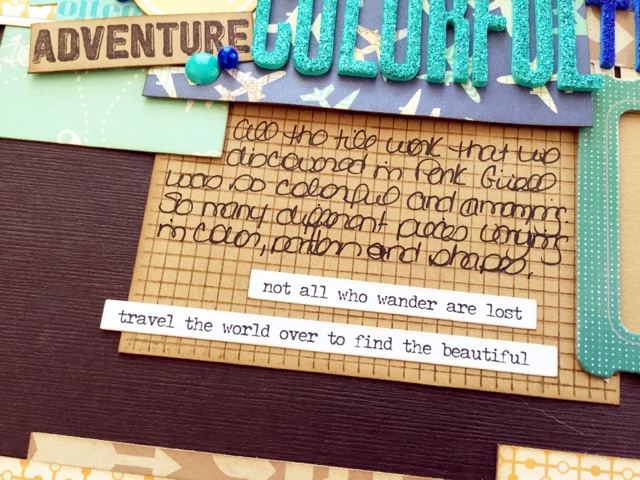 ADVENTURE
COLORFUL
All the tile work that we
discovered in Park Guell
was so colorful and amazing
So many different pieces varying
in color, pattern and shapes.
not all who wander are lost
travel the world over to find the beautiful